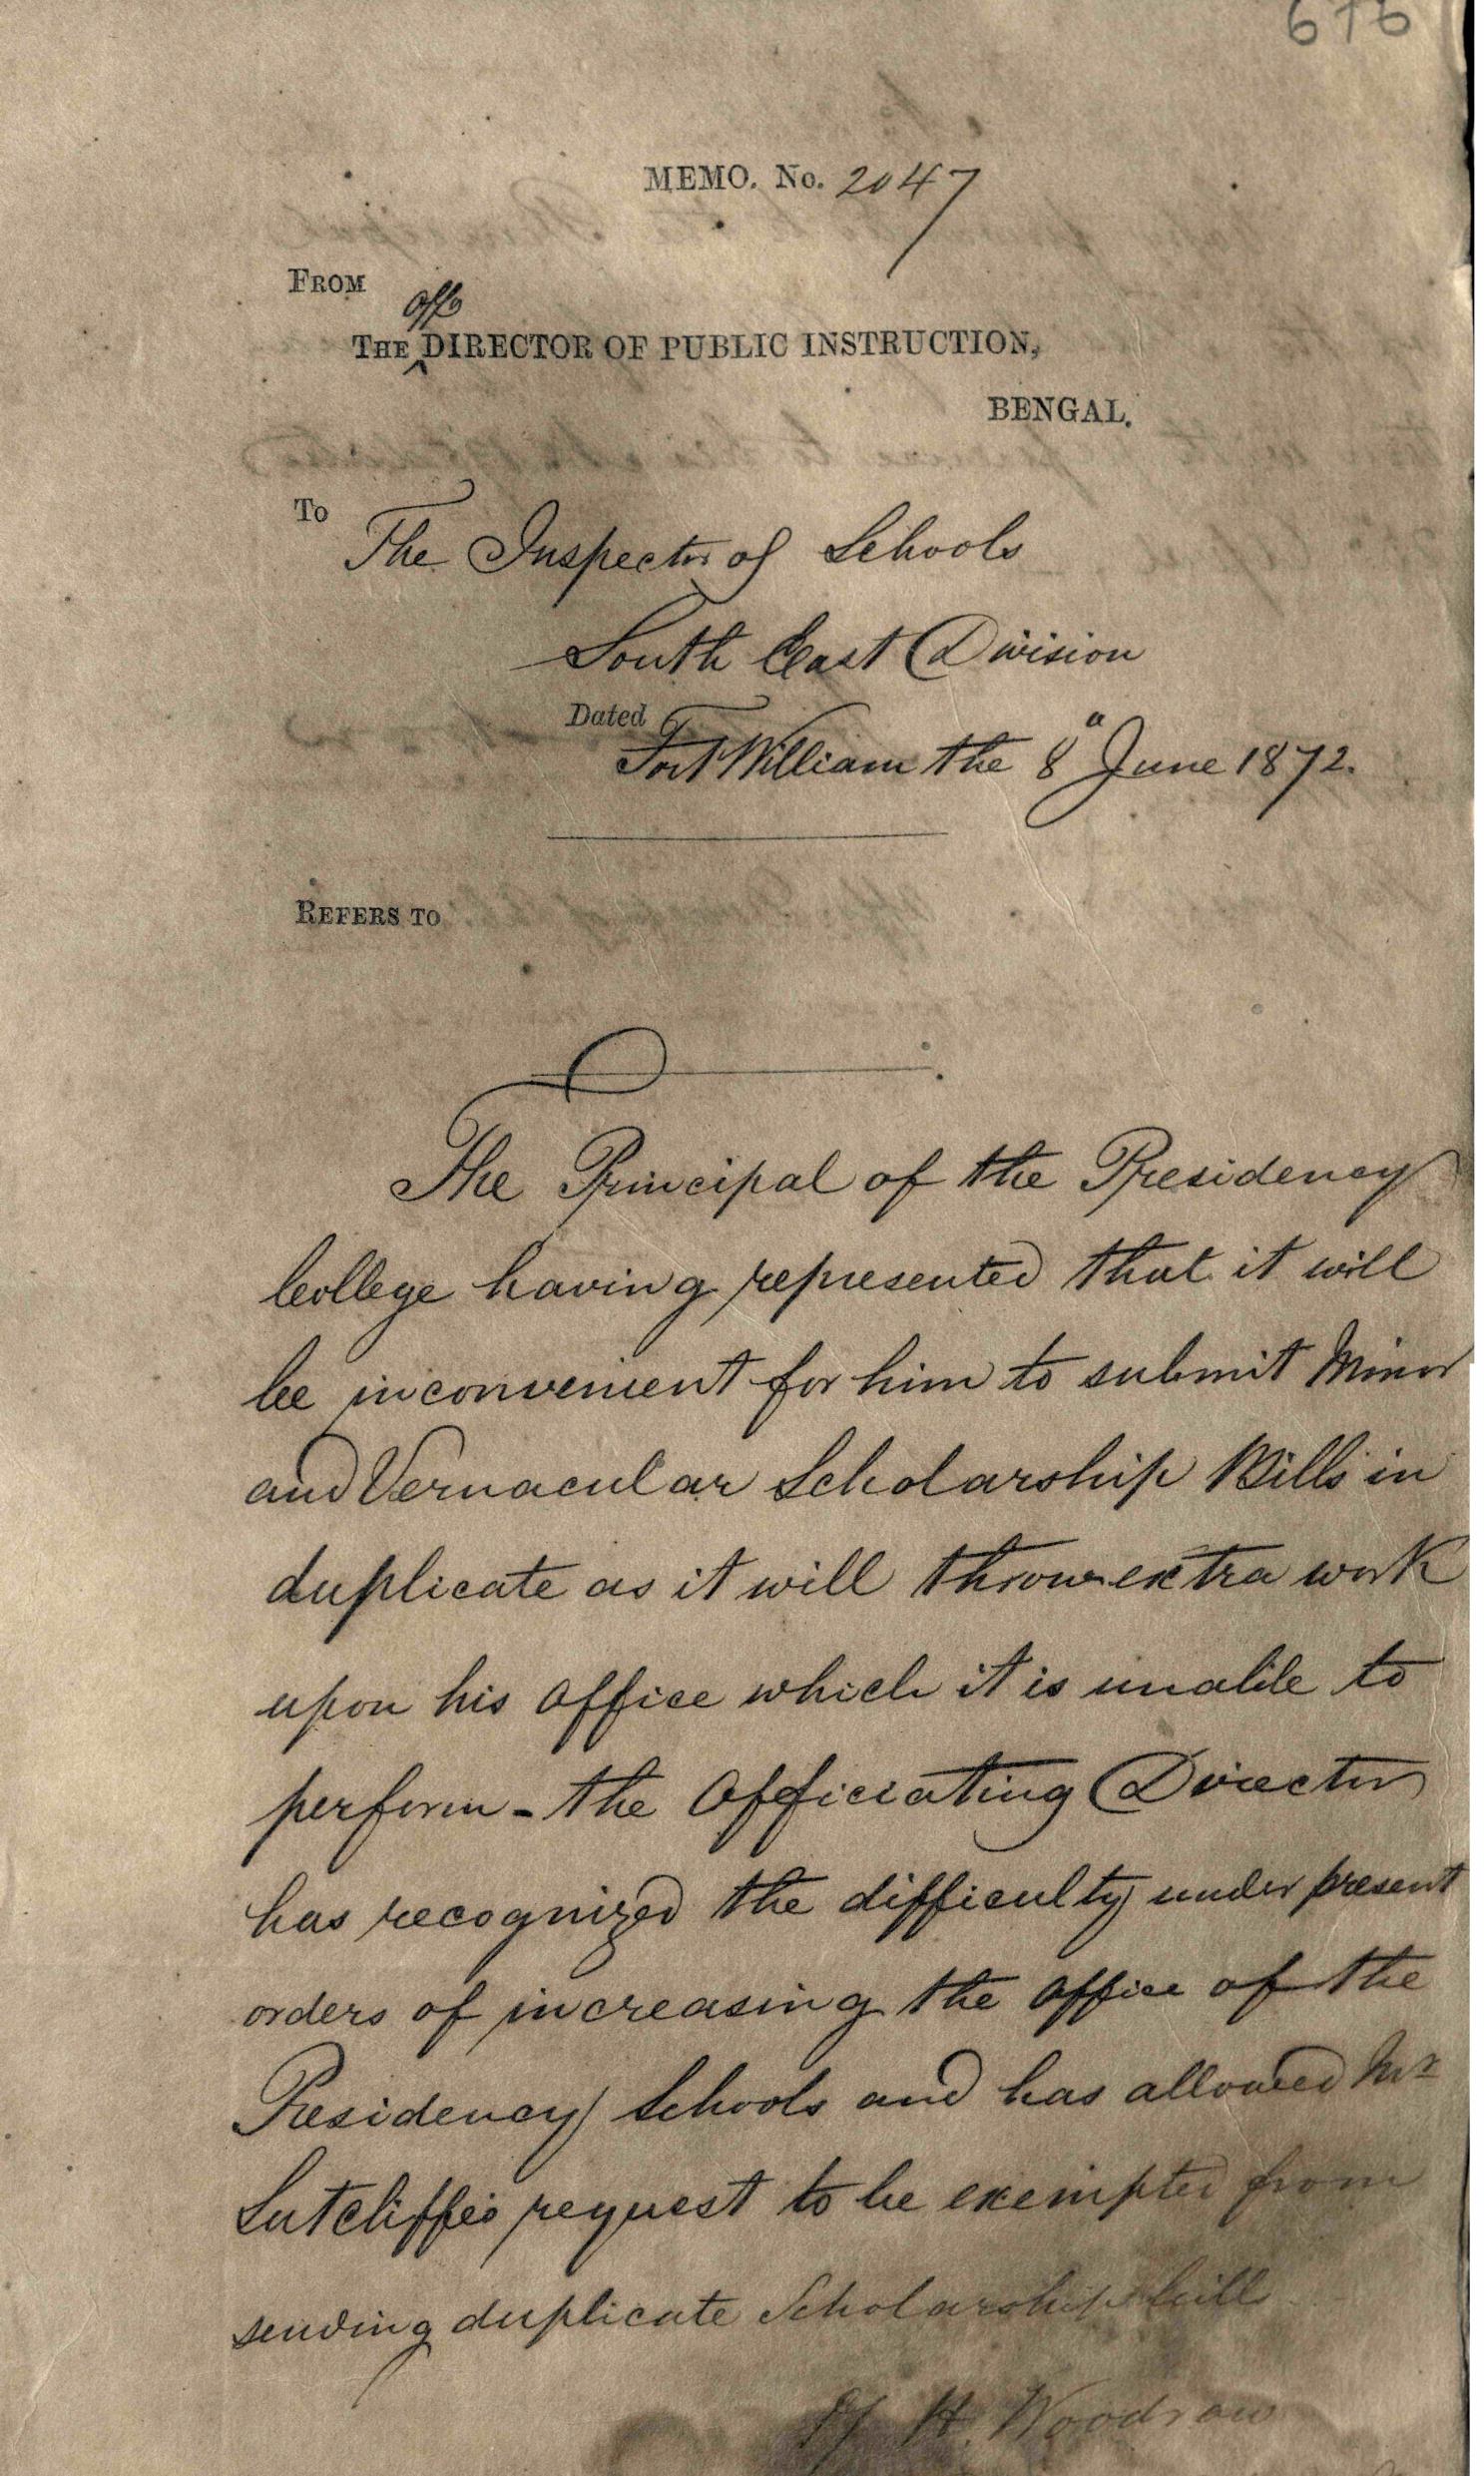 676
MEMO. No. 2047
FROM
offg
THE DIRECTOR OF PUBLIC INSTRUCTION,
BENGAL.
To
The Inspector of Schools
South East Division
Dated
Fort William the 8" June 1872.
REFERS TO
The Principal of the Presidency
College having represented that it will
be inconvenient for him to submit Minor
and Vernacular Scholarship Bills in
duplicate as it will throw extra work
upon his office which it is unable to
perform - the Officiating Director
has recognized the difficulty under present
orders of increasing the office of the
Presidency Schools and has allowed Mr
Sutcliffe's request to be exempted from
sending duplicate Scholarship bill
H. Woodrow